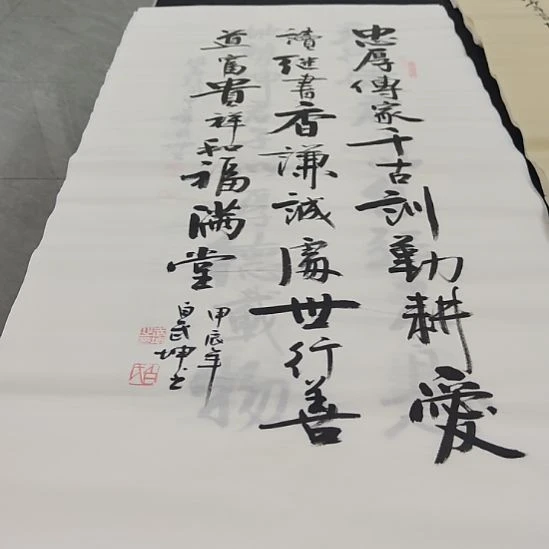 忠厚傳家千古訓勤耕愛
讀继書香謙誠處世行善
道富貴祥和福满堂
甲辰年
白民坤书